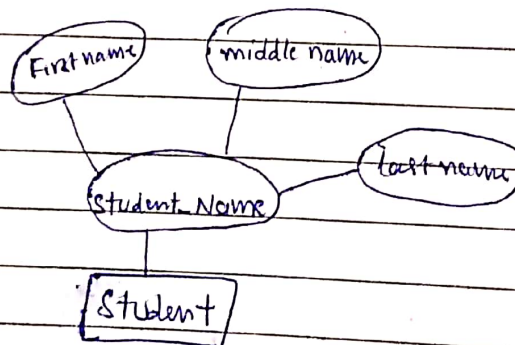 First name
middle name
last name
Student_Name
Student